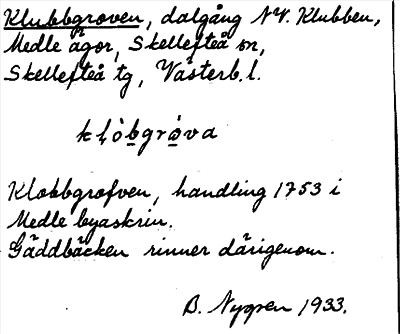 Klubbgroven, dalgång NV. Klubben,
Medle ägor, Skellefteå sn,
Skellefteå tg, Västerb. l.
Klobbgrofven, handling 1753 i
Medle byaskrin.
Gäddbäcken rinner därigenom.
B. Nygren 1933.